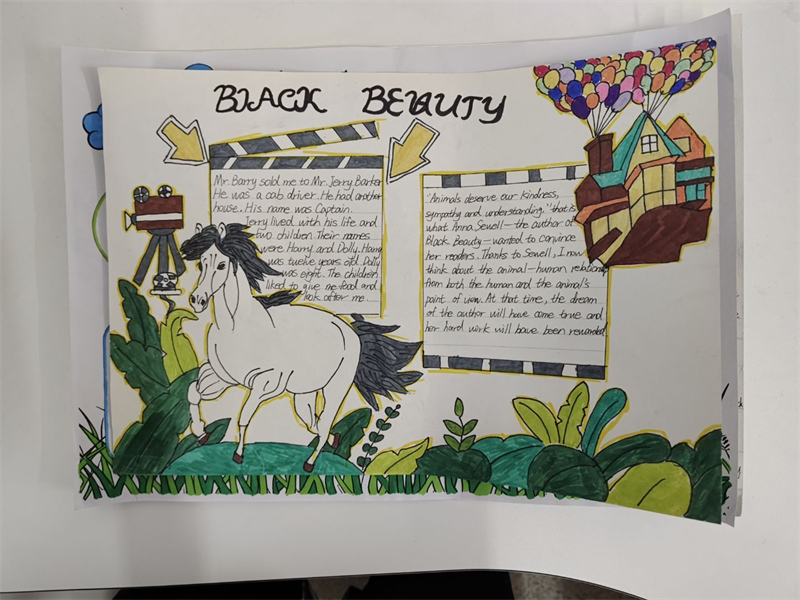 BLACK BEAUTY
Mr. Barry sold me to Mr. Jerry Barker.
He was a cab driver. He had another
house. His name was Captain.
Jerry lived with his life and
two children. Their names
were Harry and Dolly. Harry
was twelve years old. Dolly
was eight. The children
liked to give me food and
look after me.
"Animals deserve our kindness,
sympathy and understanding." that is
what Anna Sewell — the author of
Black Beauty — wanted to convince
her readers. Thanks to Sewell, I now
think about the animal-human relationship
from both the human and the animal's
point of view. At that time, the dream
of the author will have come true and
her hard work will have been rewarded.